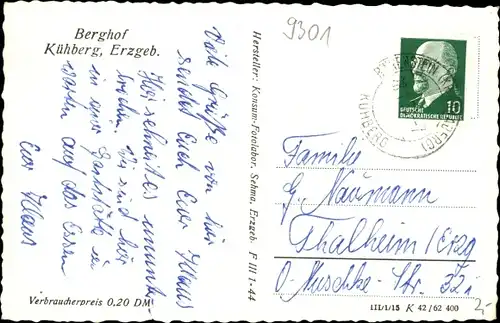 Berghof
Kühberg, Erzgeb.
Viele Grüße von hier
sendet Euch Euer Klaus
Hier schneit es ununter-
brochen. Wir sind hier
in einer Gaststätte u.
warten auf das Essen
Euer Klaus
Verbraucherpreis 0,20 DM
Hersteller: Konsum-Fotolabor, Sehma, Erzgeb. F III 1-44
9301
KÜHBERG
10
DEUTSCHE
DEMOKRATISCHE REPUBLIK
Familie
G. Naumann
Thalheim/Erzg
O.-Nuschke-Str. 32 i
III/1/15 K 42/62 400
2,-